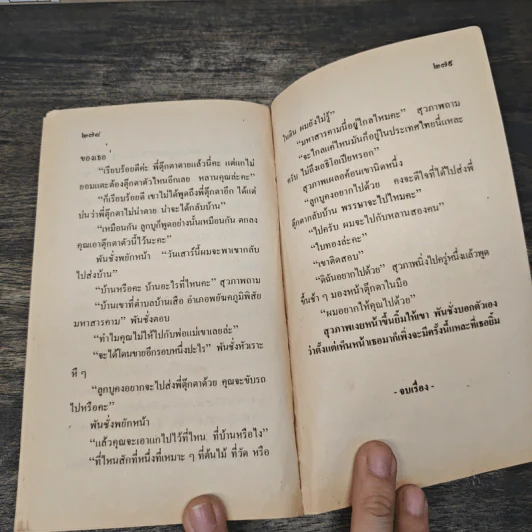 ๒๗๘
ของเธอ
“เรียบร้อยดีค่ะ พี่ตุ๊กตาตายแล้วนี่คะ แต่แกไม่
ยอมแตะต้องตุ๊กตาตัวไหนอีกเลย หลานคุณล่ะคะ”
“ก็เรียบร้อยดี เขาไม่ได้พูดถึงพี่ตุ๊กตาอีก ได้แต่
บ่นว่าพี่ตุ๊กตาไม่น่าตาย น่าจะได้กลับบ้าน”
“เหมือนกัน ลูกบูก็พูดอย่างนั้นเหมือนกัน ตกลง
คุณเอาตุ๊กตาตัวนี้ไว้นะคะ”
พันชั่งพยักหน้า “วันเสาร์นี้ผมจะพาเขากลับ
ไปส่งบ้าน”
“บ้านหรือคะ บ้านอะไรที่ไหนคะ” สุวภาพถาม
“บ้านเขาที่ตำบลบ้านเสือ อำเภอพยัคฆภูมิพิสัย
มหาสารคาม” พันชั่งตอบ
“ทำไมคุณไม่ให้ไปกับพ่อแม่เขาเลยล่ะ”
“จะได้โดนขายอีกรอบหนึ่งปะไร” พันชั่งหัวเราะ
หึ ๆ
“ลูกบูคงอยากจะไปส่งพี่ตุ๊กตาด้วย คุณจะขับรถ
ไปหรือคะ”
พันชั่งพยักหน้า
“แล้วคุณจะเอาแกไปไว้ที่ไหน ที่บ้านหรือไง”
“ที่ไหนสักที่หนึ่งที่เหมาะ ๆ ที่ต้นไม้ ที่วัด หรือ
๒๗๙
ในดิน ผมยังไม่รู้”
“มหาสารคามนี่อยู่ไกลไหมคะ” สุวภาพถาม
“จะไกลแค่ไหนมันก็อยู่ในประเทศไทยนี่แหละ
ครับ ไม่ถึงเอธิโอเปียหรอก”
สุวภาพเผลอค้อนเขานิดหนึ่ง
“ลูกบูคงอยากไปด้วย คงจะดีใจที่ได้ไปส่งพี่
ตุ๊กตากลับบ้าน พรรษาจะไปไหมคะ”
“ไปครับ ผมจะไปกับหลานสองคน”
“ใบทองล่ะคะ”
“เขาติดสอบ”
“ดิฉันอยากไปด้วย” สุวภาพนิ่งไปครู่หนึ่งแล้วพูด
ขึ้นช้า ๆ มองหน้าตุ๊กตาในมือ
“ผมอยากให้คุณไปด้วย”
สุวภาพเงยหน้าขึ้นยิ้มให้เขา พันชั่งบอกตัวเอง
ว่าตั้งแต่เห็นหน้าเธอมาก็เพิ่งจะมีครั้งนี้แหละที่เธอยิ้ม
- จบเรื่อง -